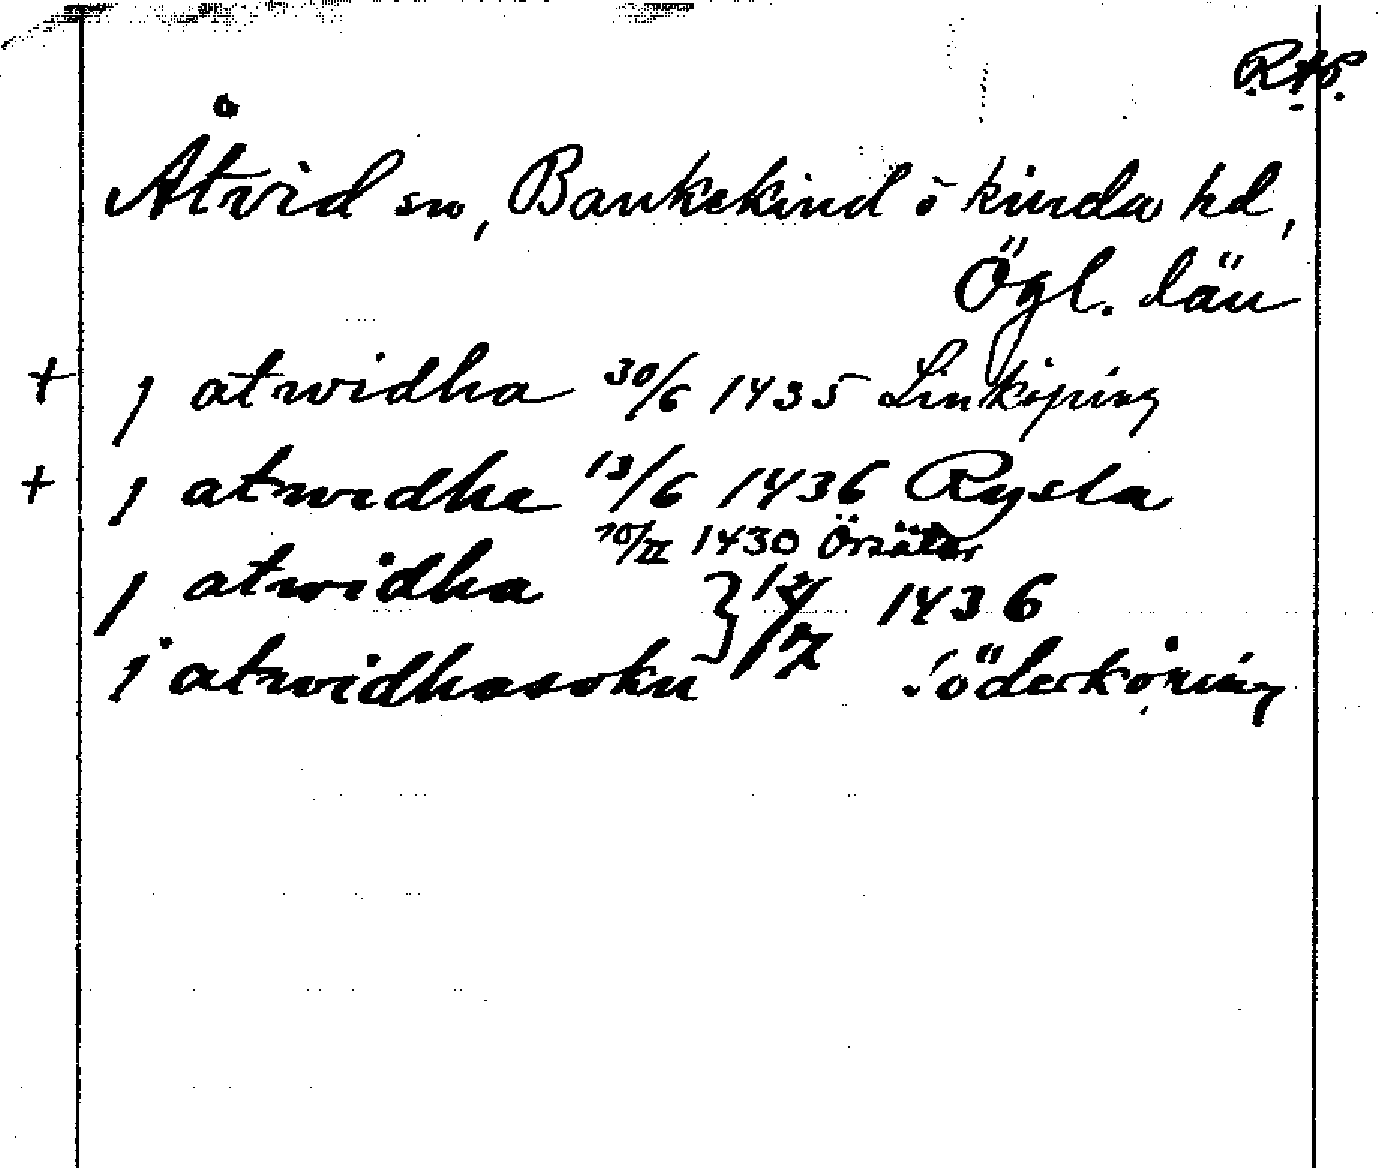 RAP.
Åtvid sn, Bankekind o kinda hd,
Ögl. län
+ j atwidha 30/6 1435 Linköping
+ j atwidhe 13/6 1436 Rysla
10/II 1430 Örsäter
j atwidha } 12/7 1436
j atwidhasokn Söderköping